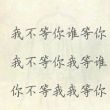 我不等你谁等你
我不等你谁等我
你不等我我等你